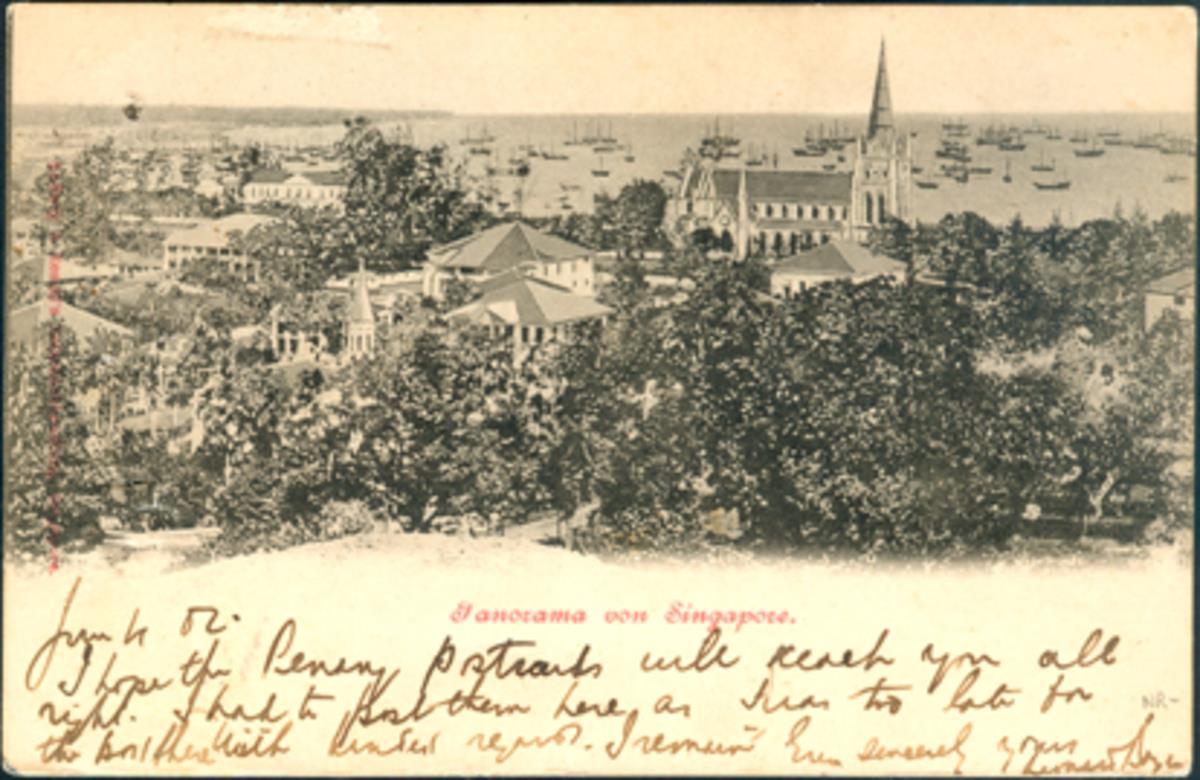 Panorama von Singapore.
02.
I hope the Penang postcards will reach you all
right. I had to post them here, as I was too late for
the post there With kindest regards. I remain Ever sincerely yours
NR-